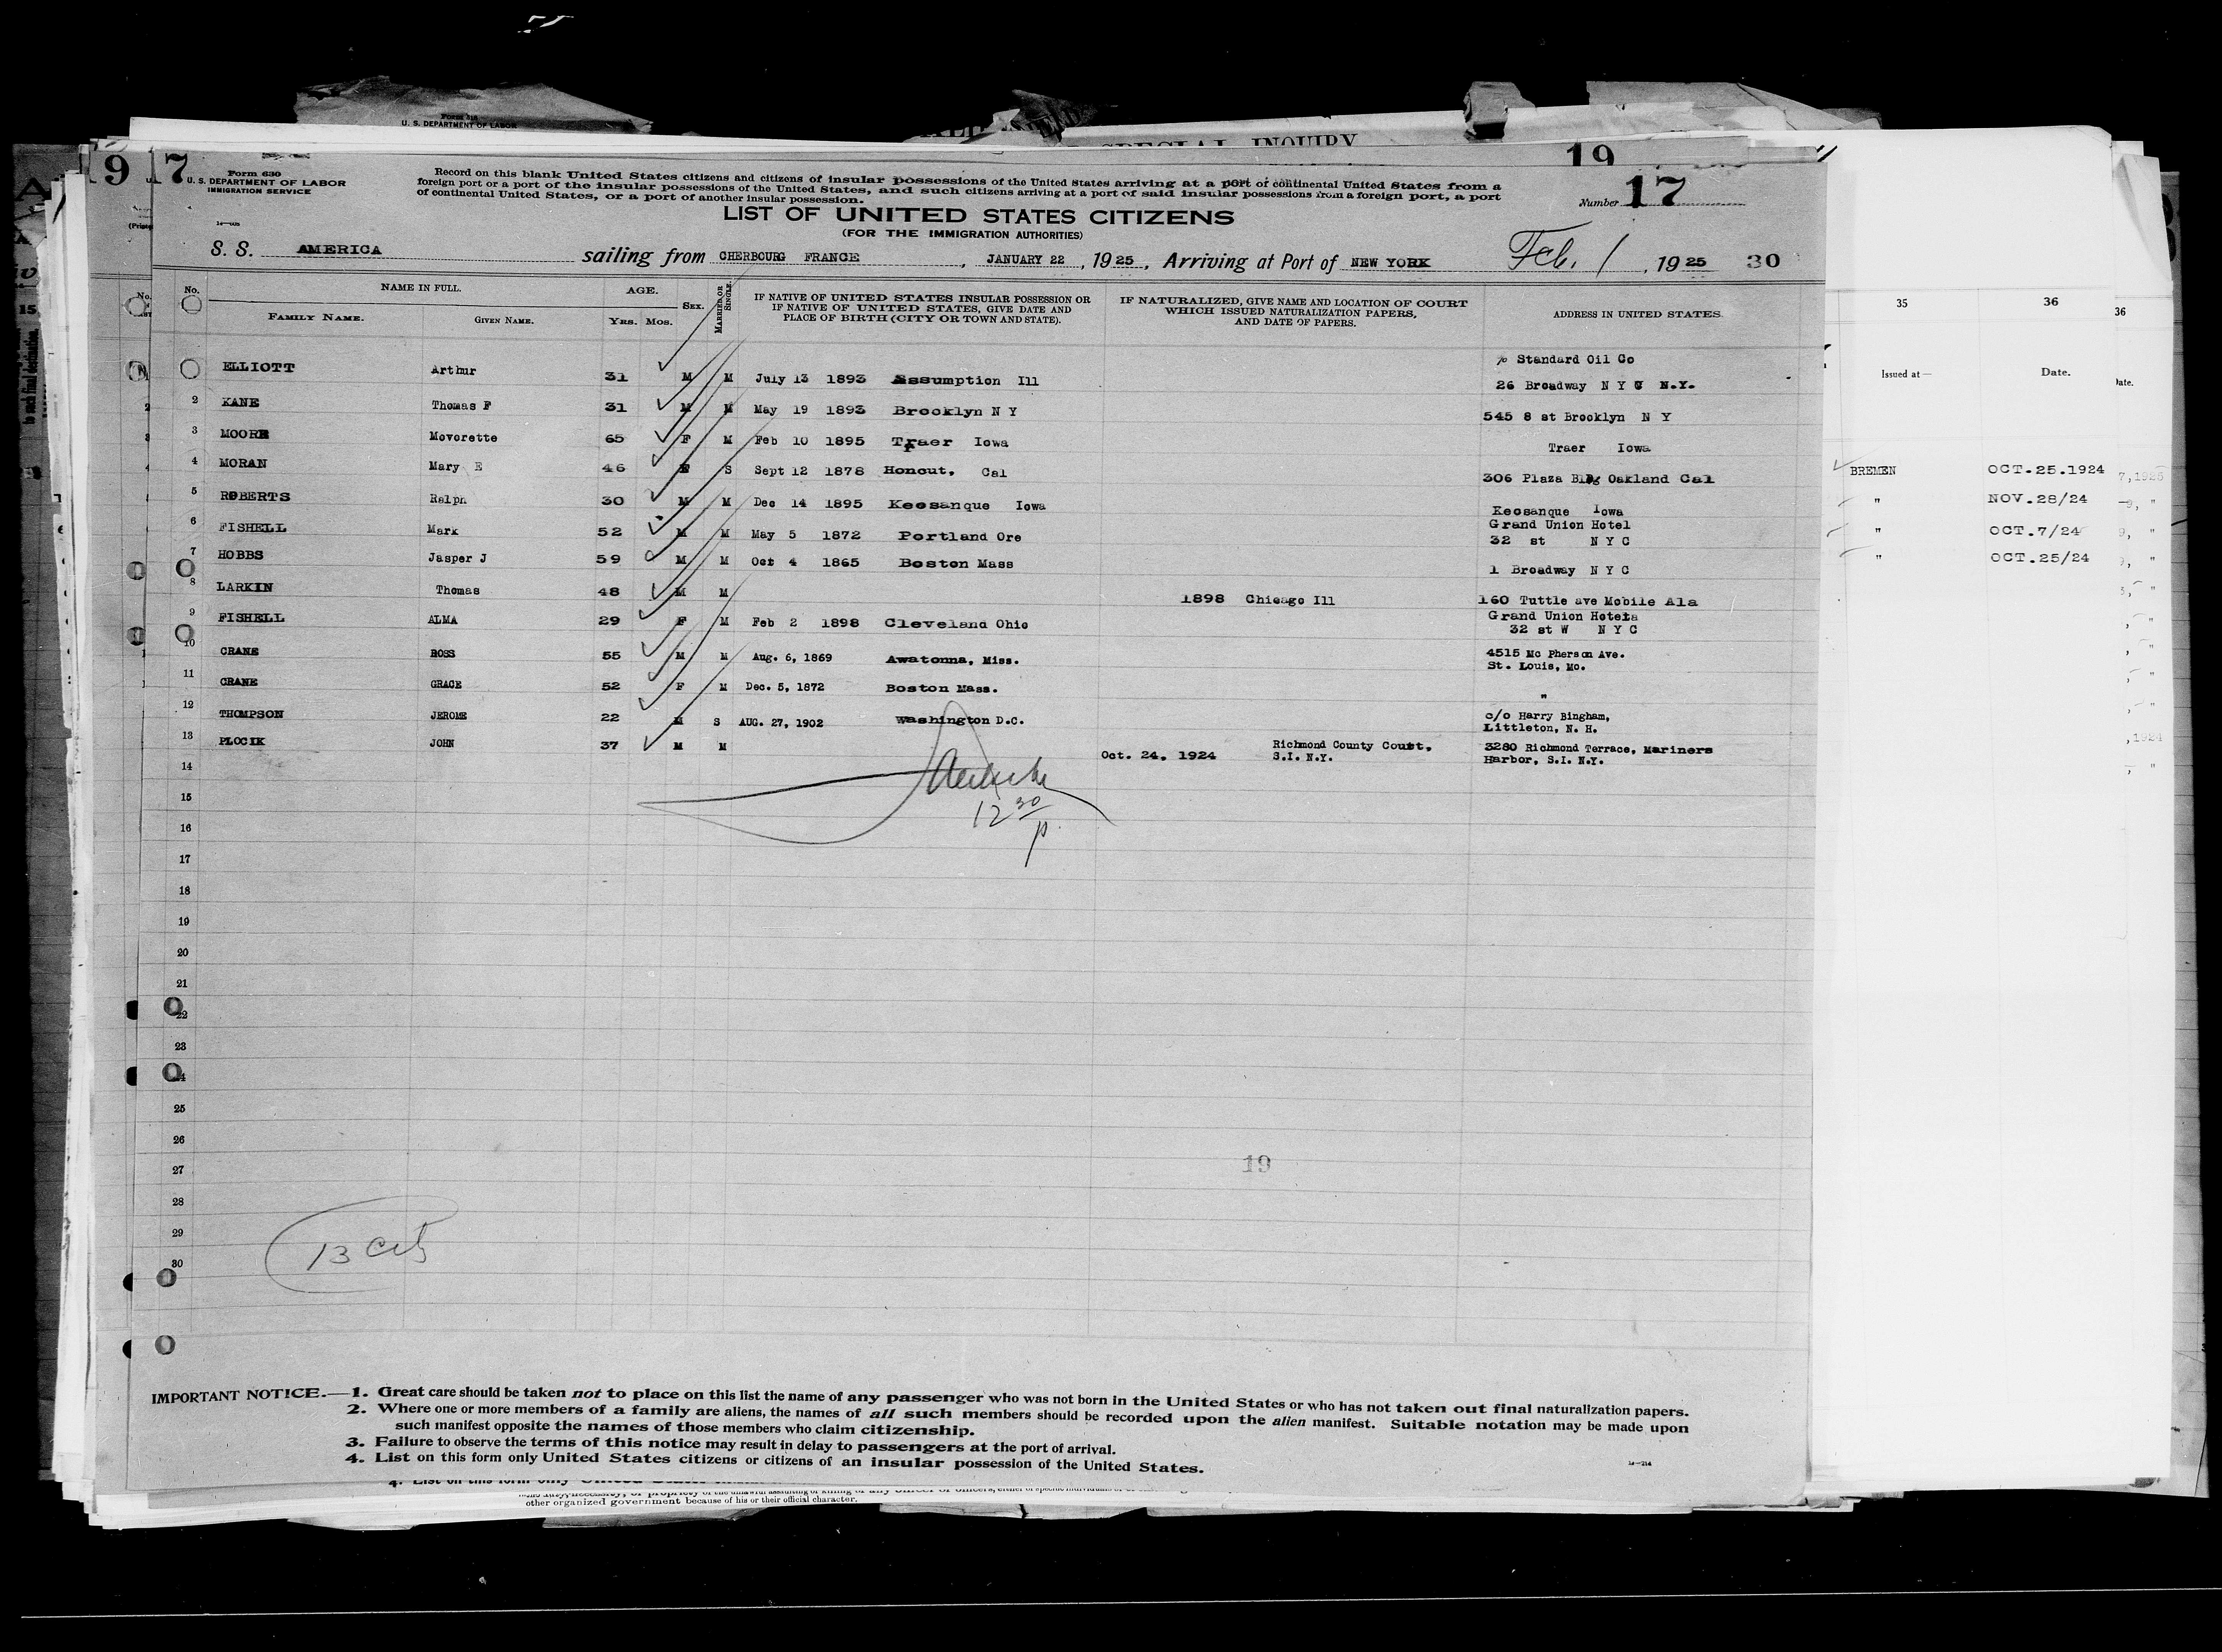 Form 630
U. S. DEPARTMENT OF LABOR
IMMIGRATION SERVICE
U. S. DEPARTMENT OF LABOR
SPECIAL INQUIRY
19
9
17
Record on this blank United States citizens and citizens of insular possessions of the United States arriving at a port of continental United States from a
foreign port or a port of the insular possessions of the United States, and such citizens arriving at a port of said insular possessions from a foreign port, a port
of continental United States, or a port of another insular possession.
Number 17
LIST OF UNITED STATES CITIZENS
(FOR THE IMMIGRATION AUTHORITIES)
S. S. AMERICA sailing from CHERBOURG FRANCE, JANUARY 22, 1925, Arriving at Port of NEW YORK Feb. 1, 1925 30
No. NAME IN FULL. AGE. SEX. MARRIED OR SINGLE. IF NATIVE OF UNITED STATES INSULAR POSSESSION OR IF NATIVE OF UNITED STATES, GIVE DATE AND PLACE OF BIRTH (CITY OR TOWN AND STATE). IF NATURALIZED, GIVE NAME AND LOCATION OF COURT WHICH ISSUED NATURALIZATION PAPERS, AND DATE OF PAPERS. ADDRESS IN UNITED STATES.
FAMILY NAME. GIVEN NAME. YRS. MOS.
% Standard Oil Co
ELLIOTT Arthur 31 M M July 13 1893 Assumption Ill 26 Broadway N Y C N.Y.
2 KANE Thomas F 31 M M May 19 1893 Brooklyn N Y 545 8 st Brooklyn N Y
3 MOORE Movorette 65 F M Feb 10 1895 Traer Iowa Traer Iowa
4 MORAN Mary E 46 F S Sept 12 1878 Honcut, Cal 306 Plaza Bldg Oakland Cal
5 ROBERTS Ralph 30 M M Dec 14 1895 Keosanque Iowa Keosanque Iowa
6 FISHELL Mark 52 M M May 5 1872 Portland Ore Grand Union Hotel
32 st N Y C
7 HOBBS Jasper J 59 M M Oct 4 1865 Boston Mass 1 Broadway N Y C
8 LARKIN Thomas 48 M M 1898 Chicago Ill 160 Tuttle ave Mobile Ala
9 FISHELL ALMA 29 F M Feb 2 1898 Cleveland Ohio Grand Union Hotela
32 st W N Y C
10 CRANE ROSS 55 M M Aug. 6, 1869 Awatonna, Miss. 4515 Mc Pherson Ave.
St. Louis, Mo.
11 CRANE GRACE 52 F M Dec. 5, 1872 Boston Mass. "
12 THOMPSON JEROME 22 M S AUG. 27, 1902 Washington D.C. c/o Harry Bingham,
Littleton, N. H.
13 PLOCIK JOHN 37 M M Oct. 24, 1924 Richmond County Court, 3280 Richmond Terrace, Mariners
S.I. N.Y. Harbor, S.I. N.Y.
14
15
12 30/p
16
17
18
19
20
21
22
23
24
25
26
27
19
28
29
13 cit
30
IMPORTANT NOTICE.—1. Great care should be taken not to place on this list the name of any passenger who was not born in the United States or who has not taken out final naturalization papers.
2. Where one or more members of a family are aliens, the names of all such members should be recorded upon the alien manifest. Suitable notation may be made upon
such manifest opposite the names of those members who claim citizenship.
3. Failure to observe the terms of this notice may result in delay to passengers at the port of arrival.
4. List on this form only United States citizens or citizens of an insular possession of the United States.
other organized government because of his or their official character.
35 36 36
Issued at— Date. Date.
BREMEN OCT.25.1924
" NOV.28/24
" OCT.7/24
" OCT.25/24